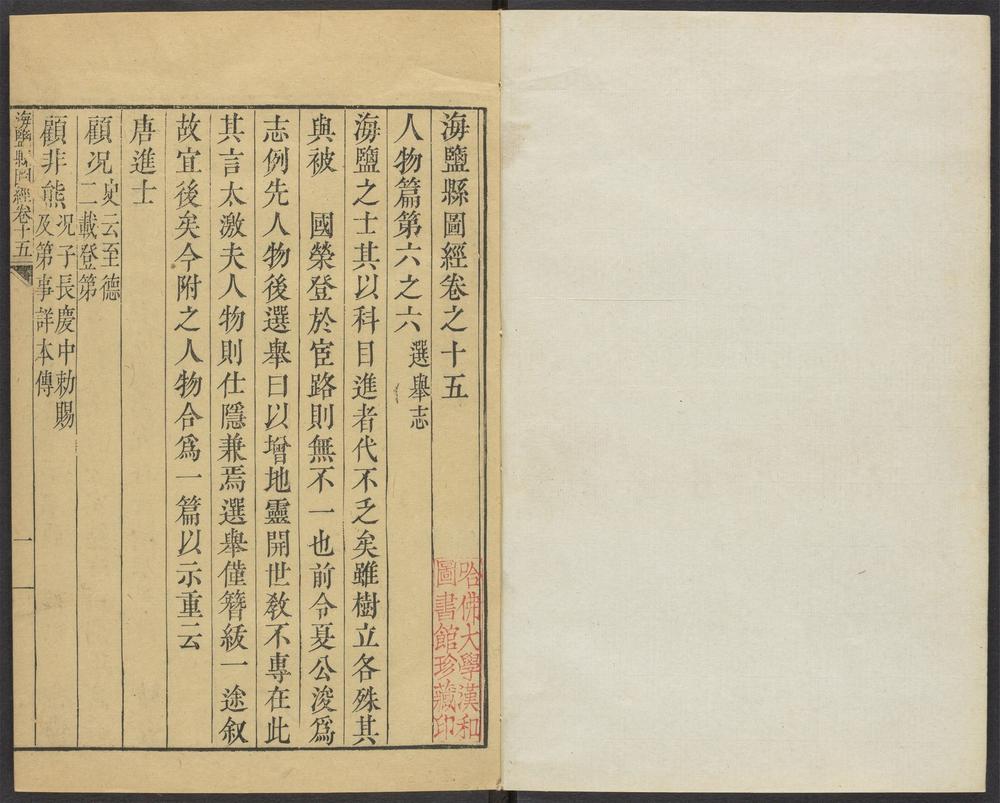 海鹽縣圖經卷之十五
人物篇第六之六 選舉志
海鹽之士其以科目進者代不乏矣雖樹立各殊其
與被 國榮登於宦路則無不一也前令夏公浚爲
志例先人物後選舉曰以增地靈開世敎不專在此
其言太激夫人物則仕隱兼焉選舉僅簪紱一途叙
故宜後矣今附之人物合爲一篇以示重云
唐進士
顧况 史云至德
二載登第
顧非熊 况子長慶中勅賜
及第事詳本傳
海鹽縣圖經卷十五
一
哈佛大學漢和
圖書館珍藏印